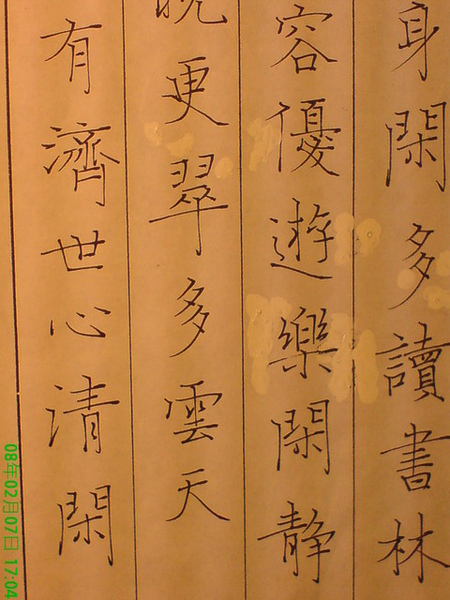 身閑多讀書林
容優遊樂閑静
更翠多雲天
有濟世心清閑
08年02月07日 17:04